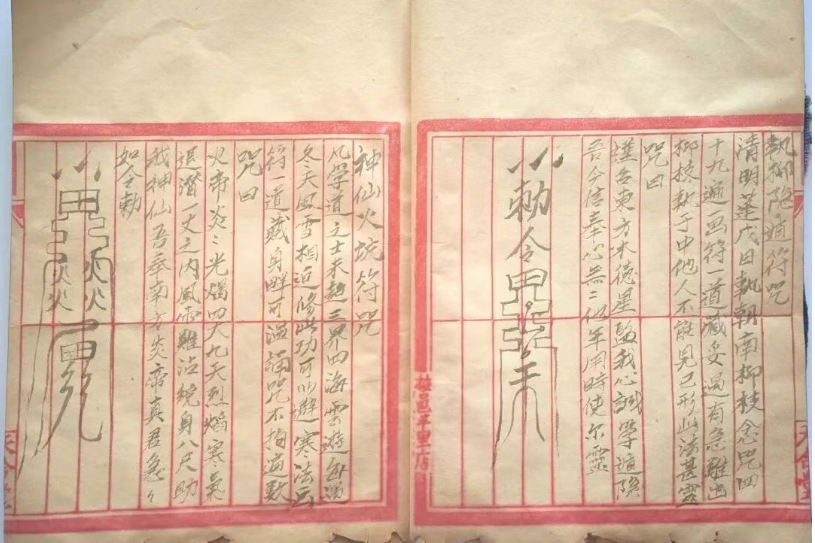 執柳隐遁符咒
清明逢戊日執朝南柳枝念咒四
十九遍画符一道藏妥遇有急難出
柳枝執手中他人不能見己形此法甚靈
咒曰
謹召東方木德星鉴我心誠學遁隐
吾今信奉心無二他年用時使尔靈
勅令
掖邑平里店
神仙火坑符咒
凡學道之士未超三界四海雲遊每遇
冬天風雪相迫修此功可以避寒法画
符一道藏身畔可温誦咒不拘遍数
咒曰
火帝炎々光燭四大九天烈焰寒氣
退潜一丈之内風雪難沾繞身八尺助
我神仙吾奉南方炎帝真君急々
如令勅